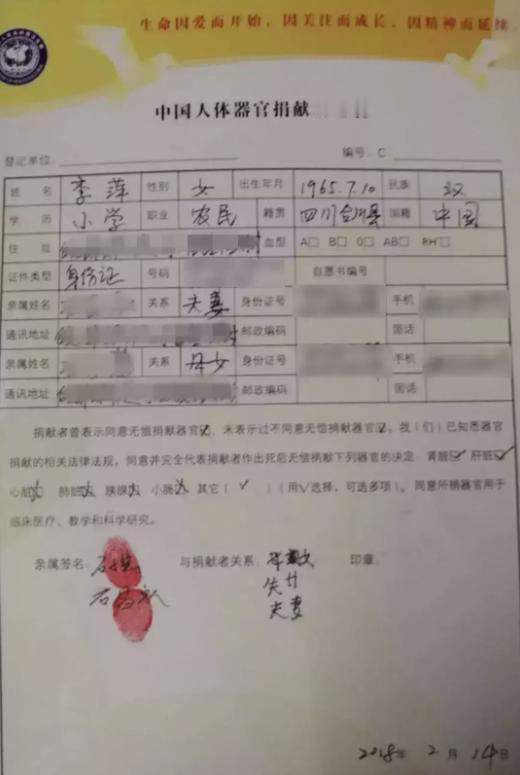 生命因爱而开始，因关注而成长，因精神而延续
中国人体器官捐献
登记单位：
编号：C
姓名 李萍 性别 女 出生年月 1965.7.10 民族 汉
学历 小学 职业 农民 籍贯 四川合川县 国籍 中国
住址 血型 A□ B□ O□ AB□ RH□
证件类型 身份证 号码 自愿书编号
亲属姓名 关系 夫妻 身份证号 手机
通讯地址 邮政编码 固话
亲属姓名 关系 母女 身份证号 手机
通讯地址 邮政编码 固话
捐献者曾表示同意无偿捐献器官☑、未表示过不同意无偿捐献器官☑。我（们）已知悉器官
捐献的相关法律法规。同意并完全代表捐献者作出死后无偿捐献下列器官的决定：肾脏☑ 肝脏☑
心脏 肺脏 胰腺 小肠 其它（ √ ）（用√选择，可选多项）。同意所捐器官用于
临床医疗、教学和科学研究。
亲属签名： 与捐献者关系： 印章：
夫妻
2018年 2月 14日